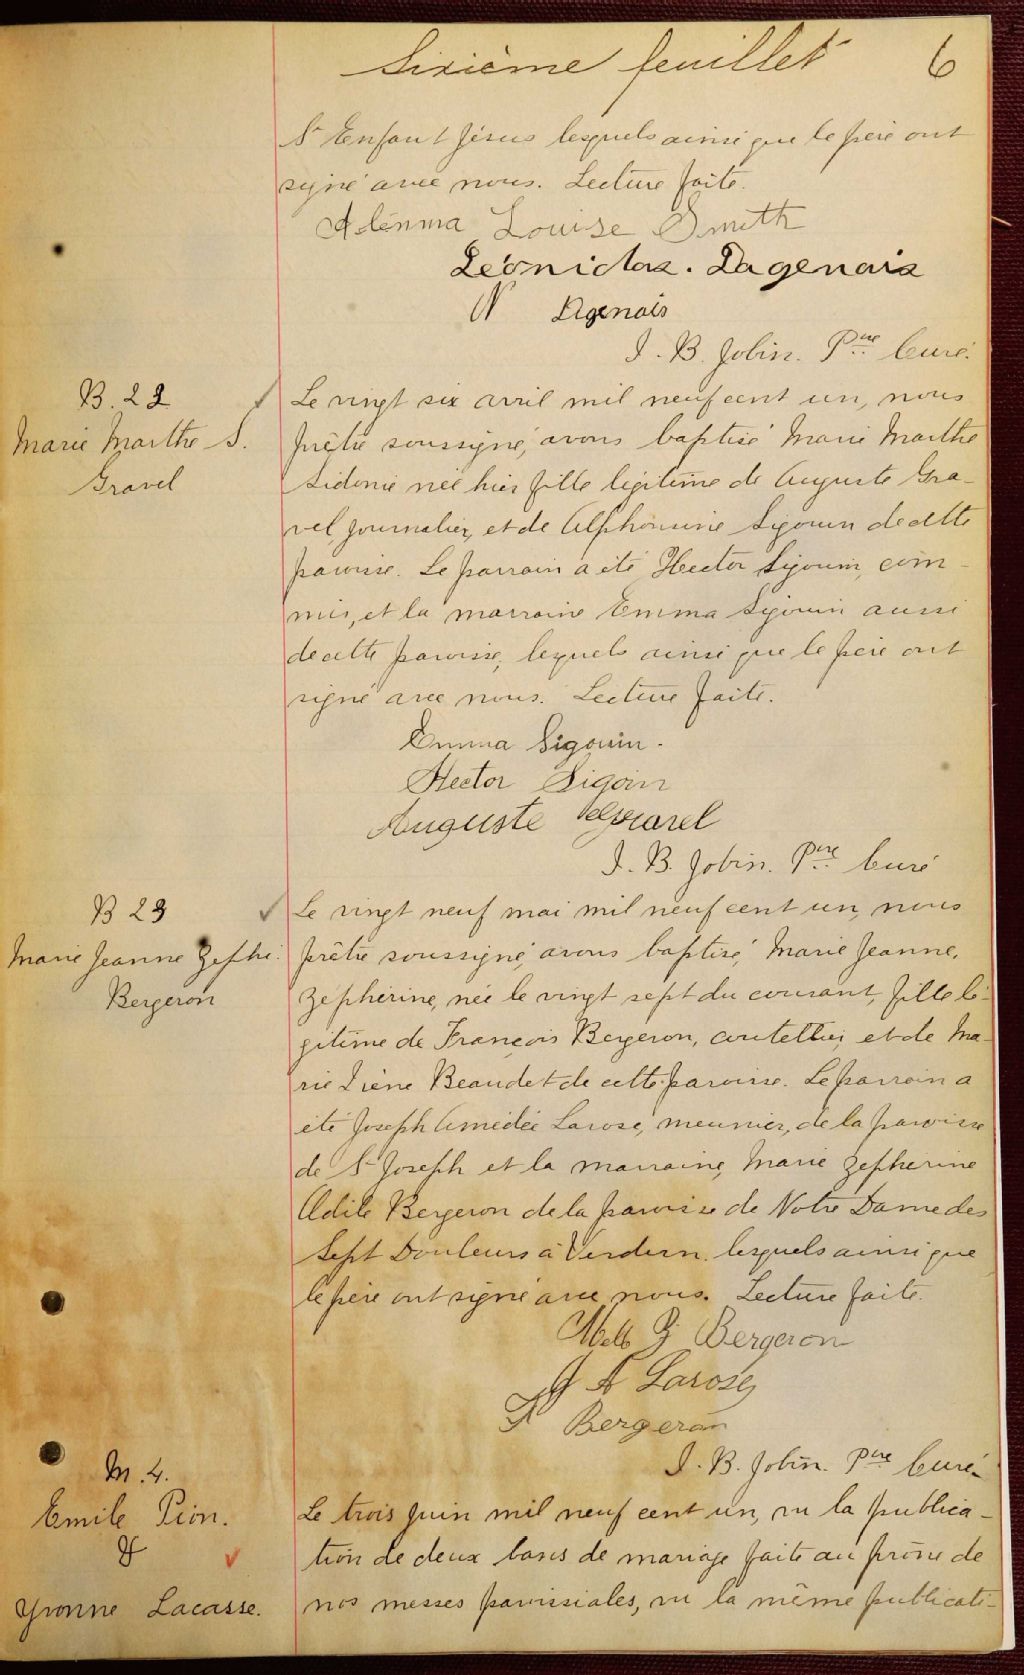 Sixième feuillet 6
St Enfant Jésus lesquels ainsi que le père ont
signé avec nous. Lecture faite.
Louise Smith
Léonidas. Dagenais
N Dgenais
J. B. Jobin. Ptre Curé.
B. 22
Marie Marthe S.
Gravel
Le vingt six avril mil neuf cent un, nous
prêtre soussigné, avons baptisé Marie Marthe
Sidonie née hier fille légitime de Auguste Gra-
vel, journalier, et de Alphonsine Sigouin de cette
paroisse. Le parrain a été Hector Sigouin, com-
mis, et la marraine Emma Sigouin aussi
de cette paroisse, lesquels ainsi que le père ont
signé avec nous. Lecture faite.
Emma Sigouin.
Hector Sigoin
Auguste Gravel
J. B. Jobin. Ptre Curé
B 23
Marie Jeanne Zephi.
Bergeron
Le vingt neuf mai mil neuf cent un, nous
prêtre soussigné, avons baptisé, Marie Jeanne,
Zéphirine, née le vingt sept du courant, fille lé-
gitime de François Bergeron, coutellier, et de Ma-
rie Irène Beaudet de cette paroisse. Le parrain a
été Joseph Amédée Larose, meunier, de la paroisse
de St Joseph et la marraine, Marie Zephirine
Bergeron de la paroisse de Notre Dame des
Sept Douleurs à Verdun. lesquels ainsi que
le père ont signé avec nous. Lecture faite.
Melle Z Bergeron
J A Larose
F Bergeron
J. B. Jobin. Ptre Curé.
M. 4.
Emile Pion.
&
Yvonne Lacasse.
Le trois juin mil neuf cent un, vu la publica-
tion de deux bans de mariage faite au prône de
nos messes paroissiales, vu la même publicati-